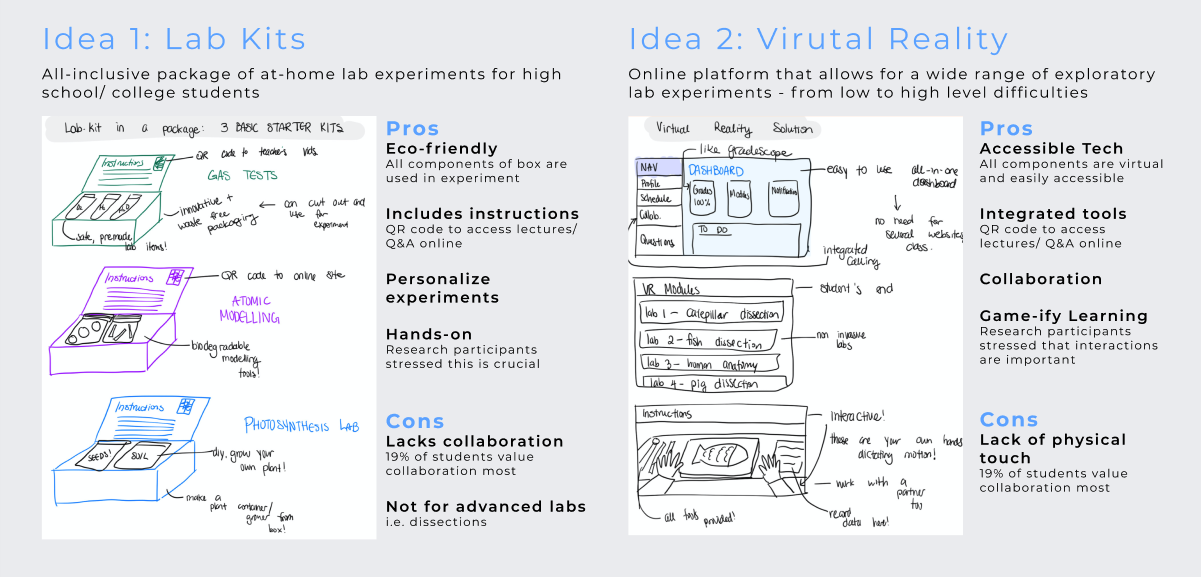 Idea 1: Lab Kits
All-inclusive package of at-home lab experiments for high
school/ college students
Lab-kit in a package: 3 BASIC STARTER KITS
Instructions
QR code to teacher's vids
GAS TESTS
innovative +
waste free
packaging
can cut out and
use for
experiment
safe, premade
lab items!
Instructions
QR code to online site
ATOMIC
MODELLING
biodegradable
modelling
tools!
Instructions
PHOTOSYNTHESIS LAB
SEEDS!
SOIL
diy, grow your
own plant!
make a
plant container/
grower from
box!
Pros
Eco-friendly
All components of box are
used in experiment
Includes instructions
QR code to access lectures/
Q&A online
Personalize
experiments
Hands-on
Research participants
stressed this is crucial
Cons
Lacks collaboration
19% of students value
collaboration most
Not for advanced labs
i.e. dissections
Idea 2: Virutal Reality
Online platform that allows for a wide range of exploratory
lab experiments - from low to high level difficulties
Virtual Reality Solution
like gradescope
NAV
Profile
Schedule
Collab.
Questions
DASHBOARD
Grades
100%
Modules
Notification
TO DO
easy to use
all-in-one
dashboard
no need for
several websites
class.
integrated
calling
VR Modules
student's end
lab 1 - catepillar dissection
lab 2 - fish dissection
lab 3 - human anatomy
lab 4 - pig dissection
non invasive
labs
Instructions
Interactive!
these are your own hands
dictating motion!
work with a
partner
too
all tools
provided!
record
data here!
Pros
Accessible Tech
All components are virtual
and easily accessible
Integrated tools
QR code to access
lectures/ Q&A online
Collaboration
Game-ify Learning
Research participants
stressed that interactions
are important
Cons
Lack of physical
touch
19% of students value
collaboration most